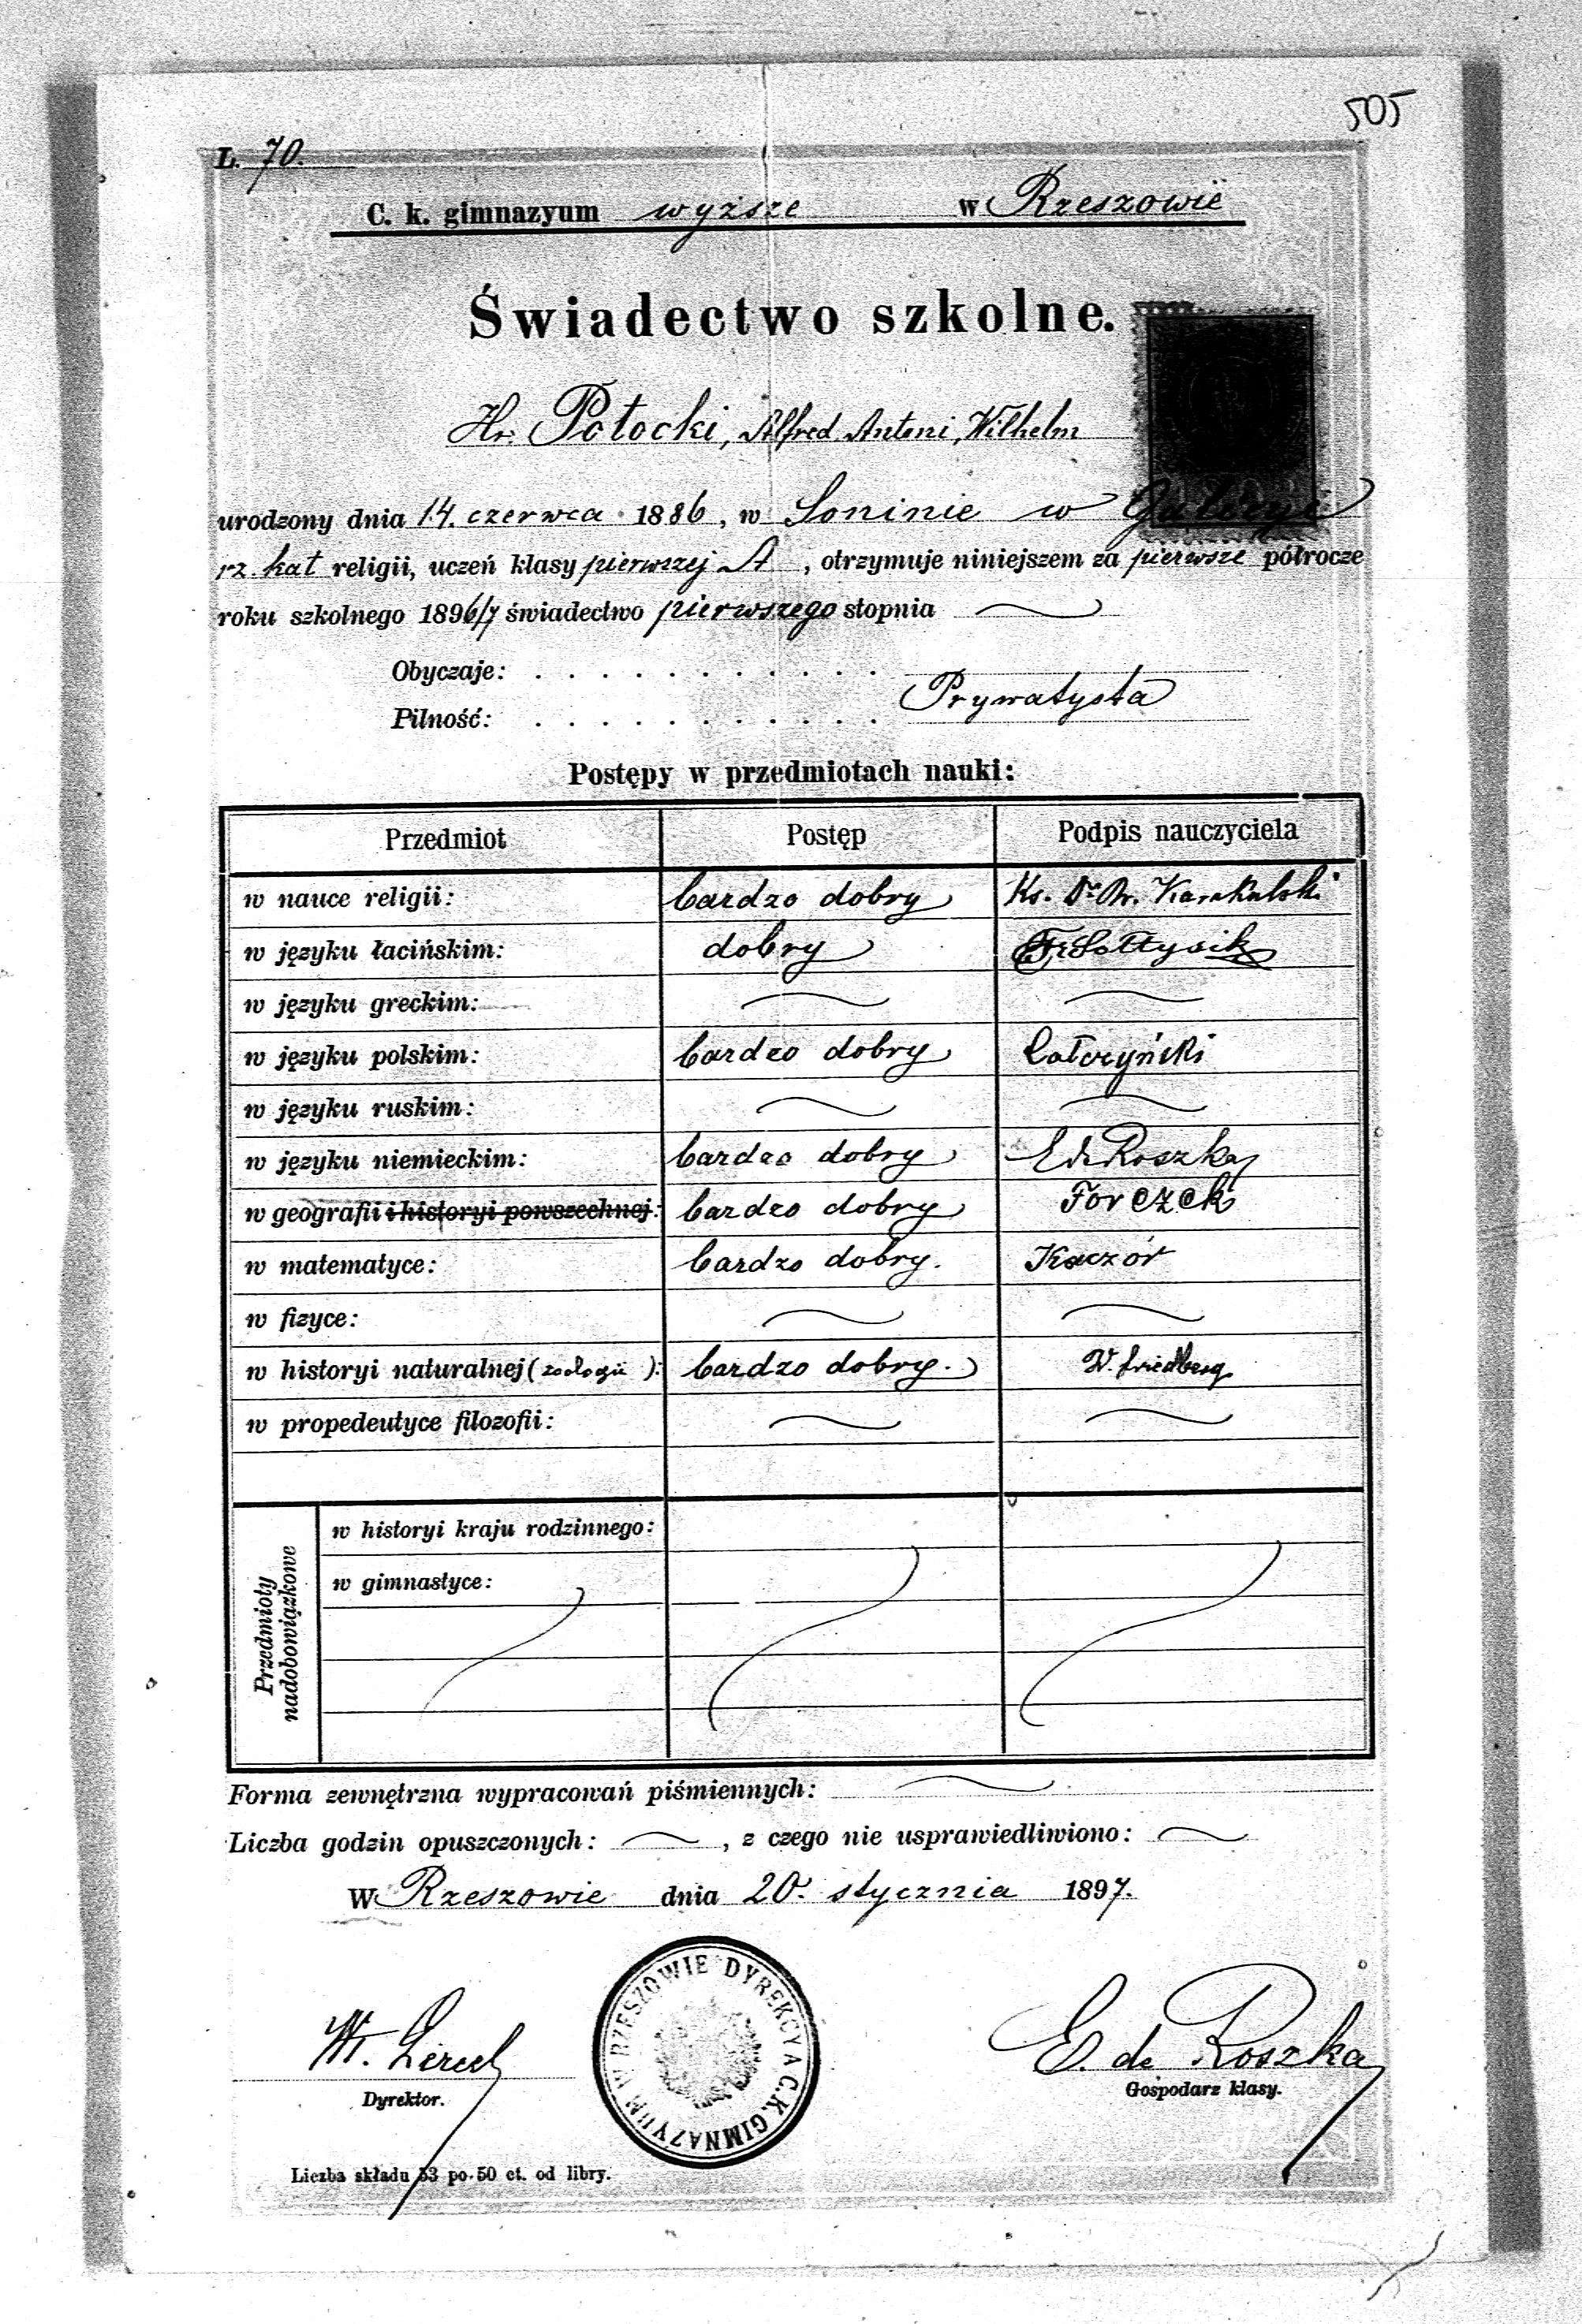 505
L. 70.
C. k. gimnazyum wyższe w Rzeszowie
Świadectwo szkolne.
Hr. Potocki, Alfred Antoni, Wilhelm
urodzony dnia 14. czerwca 1886, w Soninie w Galicyi
rz. kat religii, uczeń klasy pierwszej A, otrzymuje niniejszem za pierwsze półrocze
roku szkolnego 1896/7 świadectwo pierwszego stopnia
Obyczaje:
Prywatysta
Pilność:
Postępy w przedmiotach nauki:
Przedmiot Postęp Podpis nauczyciela
w nauce religii: bardzo dobry Ks. Dr
w języku łacińskim: dobry Fr Sołtysik
w języku greckim:
w języku polskim: bardzo dobry
w języku ruskim:
w języku niemieckim: bardzo dobry E de Roszka
w geografii i historyi powszechnej: bardzo dobry Forczek
w matematyce: bardzo dobry. Kaczór
w fizyce:
w historyi naturalnej (zoologii): bardzo dobry. W. Friedberg
w propedeutyce filozofii:
Przedmioty nadobowiązkowe
w historyi kraju rodzinnego:
w gimnastyce:
Forma zewnętrzna wypracowań piśmiennych:
Liczba godzin opuszczonych: , z czego nie usprawiedliwiono:
W Rzeszowie dnia 20. stycznia 1897.
DYREKCYA C. K. GIMNAZYUM W RZESZOWIE
E. de Roszka
Dyrektor.
Gospodarz klasy.
Liczba składu 53 po 50 ct. od libry.